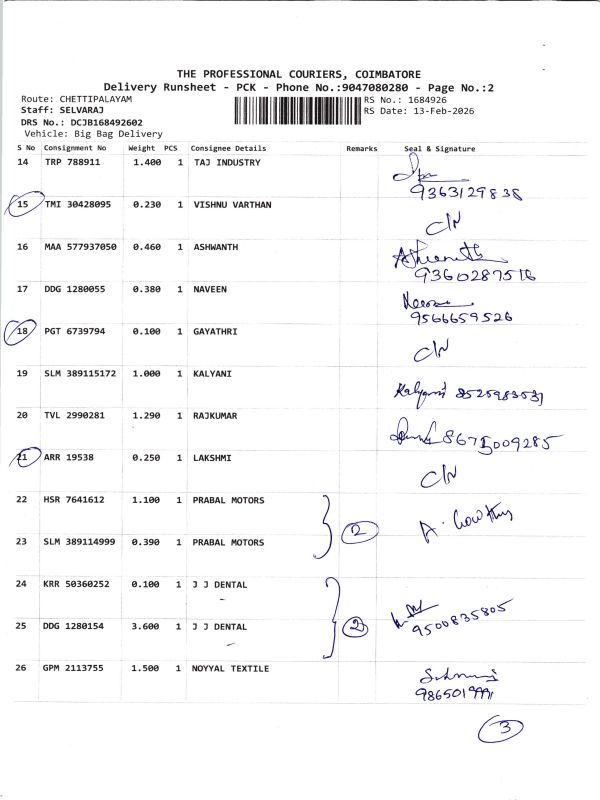 THE PROFESSIONAL COURIERS, COIMBATORE
Delivery Runsheet - PCK - Phone No.:9047080280 - Page No.:2
Route: CHETTIPALAYAM RS No.: 1684926
Staff: SELVARAJ RS Date: 13-Feb-2026
DRS No.: DCJB168492602
Vehicle: Big Bag Delivery
S No Consignment No Weight PCS Consignee Details Remarks Seal & Signature
14 TRP 788911 1.400 1 TAJ INDUSTRY
9363129838
15 TMI 30428095 0.230 1 VISHNU VARTHAN
C/N
16 MAA 577937050 0.460 1 ASHWANTH
9360287516
17 DDG 1280055 0.380 1 NAVEEN
9566659526
18 PGT 6739794 0.100 1 GAYATHRI
C/N
19 SLM 389115172 1.000 1 KALYANI
Kalyani 8525983531
20 TVL 2990281 1.290 1 RAJKUMAR
8675009285
21 ARR 19538 0.250 1 LAKSHMI
C/N
22 HSR 7641612 1.100 1 PRABAL MOTORS
2
23 SLM 389114999 0.390 1 PRABAL MOTORS
24 KRR 50360252 0.100 1 J J DENTAL
2 9500835805
25 DDG 1280154 3.600 1 J J DENTAL
26 GPM 2113755 1.500 1 NOYYAL TEXTILE
3